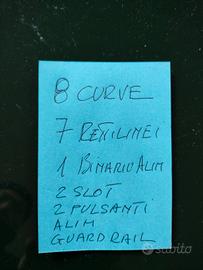 8 CURVE
7 RETTILINEI
1 BINARIO ALIM
2 SLOT
2 PULSANTI
ALIM
GUARD RAIL
subito